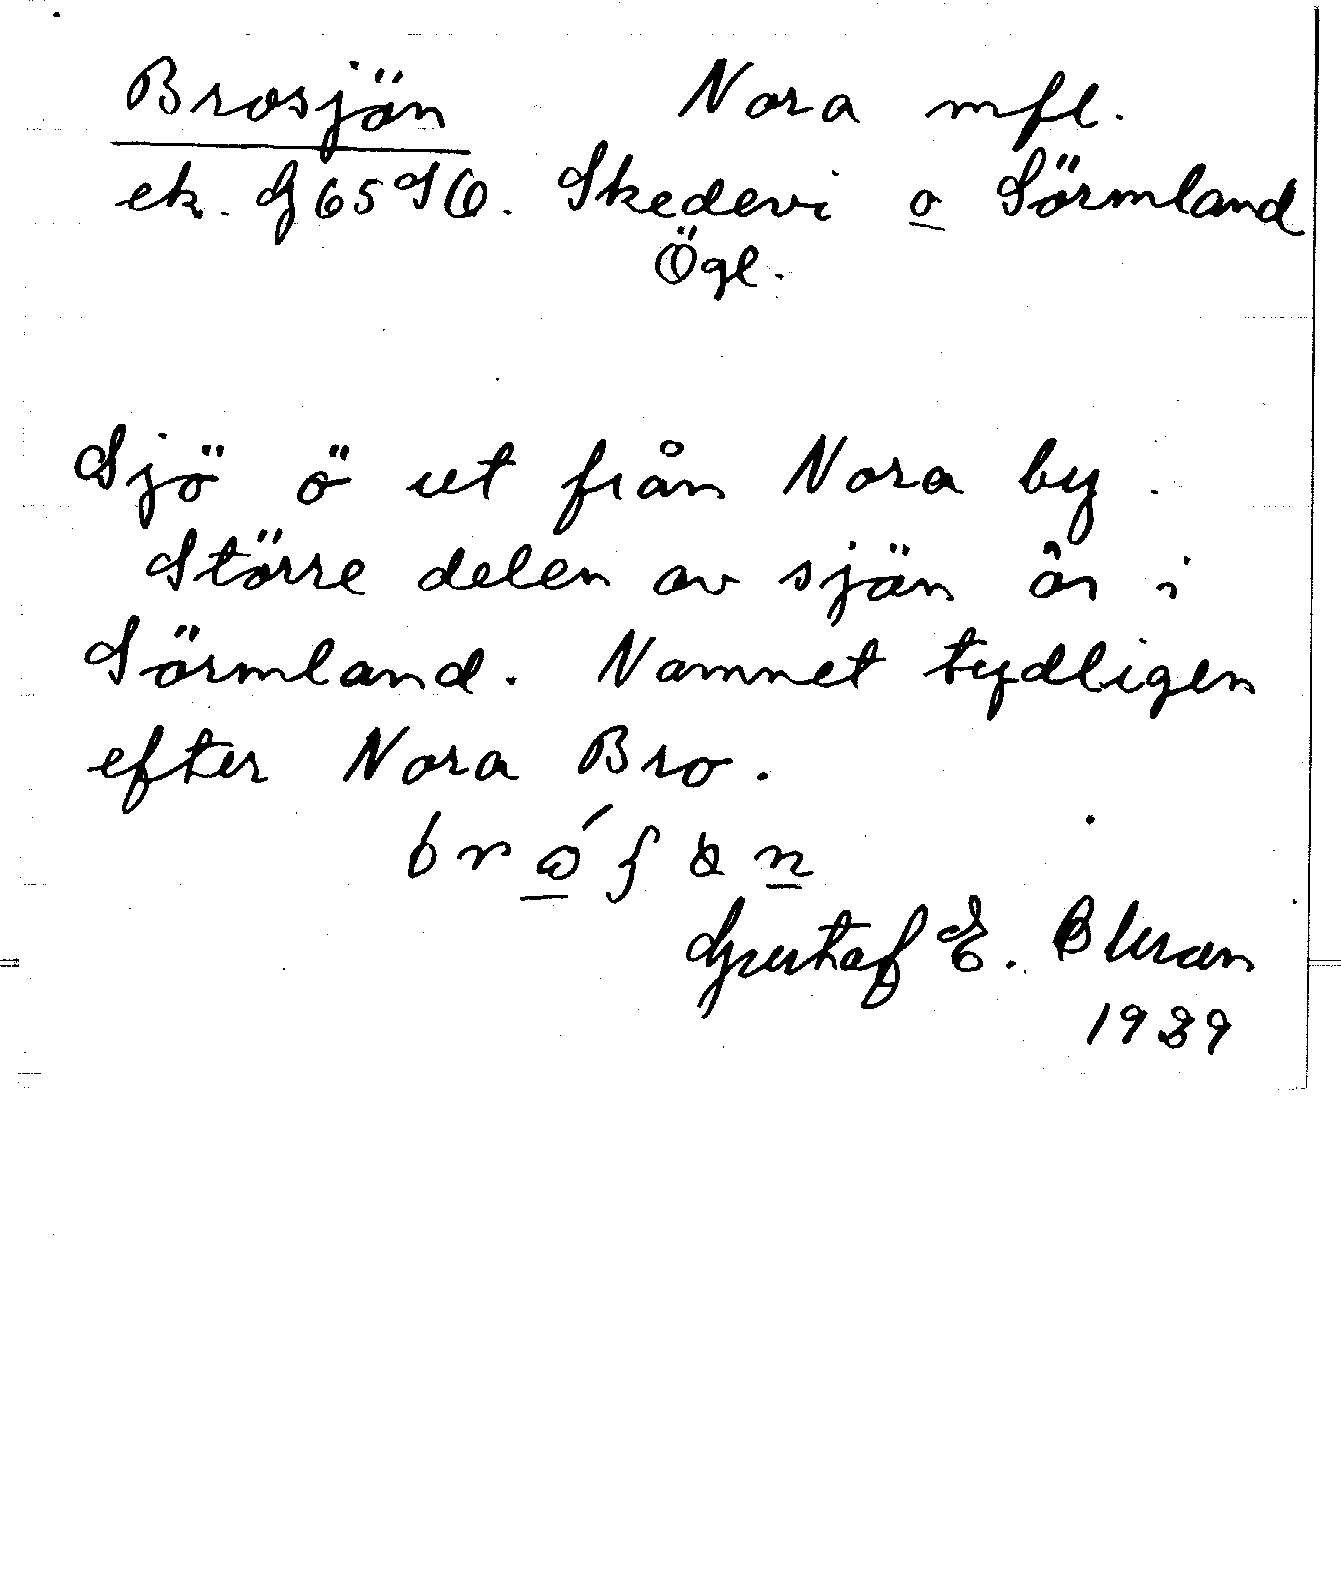 Brosjön Nora mfl.
ek. G 65 SO. Skedevi o Sörmland
Ögl.
Sjö ö ut från Nora by.
Större delen av sjön är i
Sörmland. Namnet tydligen
efter Nora Bro.
Gustaf E. Bluran
1939